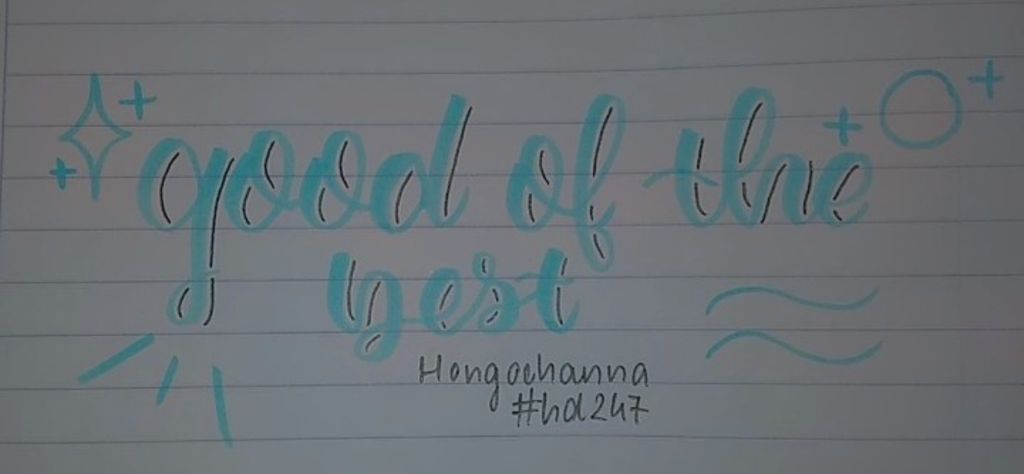 good of the
best
Hongochanna
#hd247